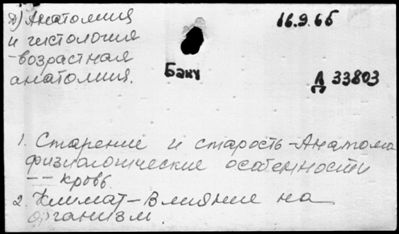 д) Анатомия
и гистология
-возрастная
анатомия.
16.9.66
Баку
Д 33803
1. Старение и старость-Анатомо
физиалогические особенности
-- кровь.
2. Климат-Влияние на
организм.